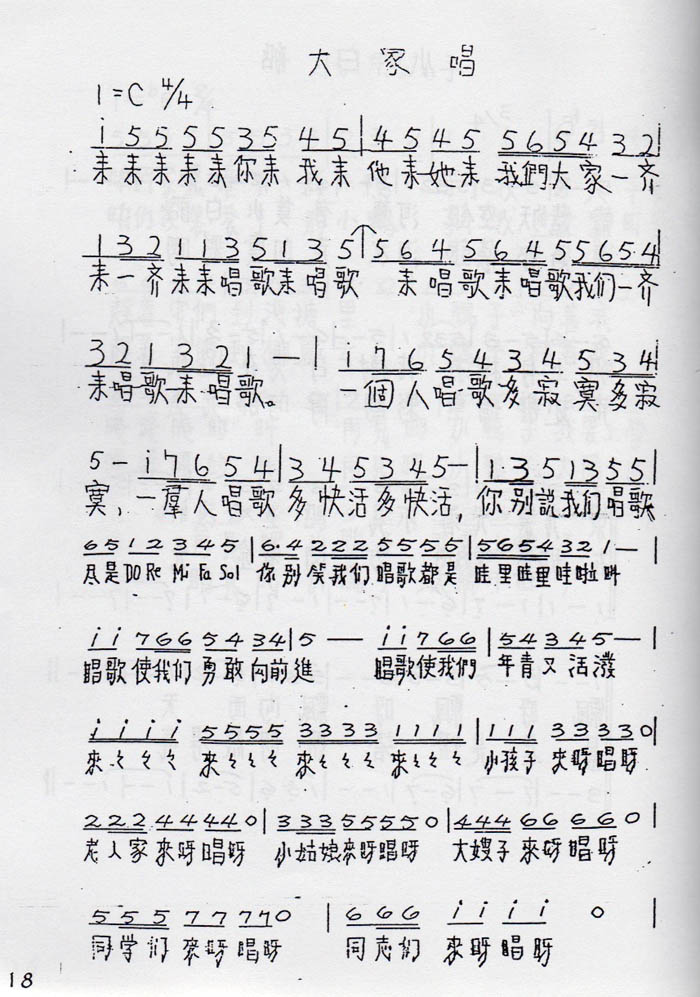 大家唱
1=C 4/4
i 5 5 5 5 3 5 4 5 | 4 5 4 5 5 6 5 4 3 2 |
来来来来来你来 我来 他来她来 我們大家一齐
1 3 2 1 1 3 5 1 3 5 5 6 4 5 6 4 5 5 6 5 4 |
来一齐来来唱歌来唱歌 来唱歌来唱歌我们一齐
3 2 1 3 2 1 — | i 7 6 5 4 3 4 5 3 4 |
来唱歌来唱歌。 一個人唱歌多寂寞多寂
5 — i 7 6 5 4 | 3 4 5 3 4 5 — | 1 3 5 1 3 5 5 |
寞，一羣人唱歌多快活多快活，你别説我们唱歌
6 5 1 2 3 4 5 | 6 · 4 2 2 2 5 5 5 5 | 5 6 5 4 3 2 1 — |
尽是DO Re Mi Fa Sol 你别笑我们唱歌都是 哇里哇里哇啦叫
i i 7 6 6 5 4 3 4 | 5 — — i i 7 6 6 | 5 4 3 4 5 — — |
唱歌使我们勇敢向前進 唱歌使我們 年青又活潑
i i i i 5 5 5 5 3 3 3 3 1 1 1 1 | 1 1 1 3 3 3 3 0 |
來々々々 來々々々 來々々々 來々々々 小孩子來呀唱呀
2 2 2 4 4 4 4 0 | 3 3 3 5 5 5 5 0 | 4 4 4 6 6 6 6 0 |
老人家來呀唱呀 小姑娘來呀唱呀 大嫂子來呀唱呀
5 5 5 7 7 7 7 0 | 6 6 6 i i i i 0 |
同学们來呀唱呀 同志们 來呀唱呀
18